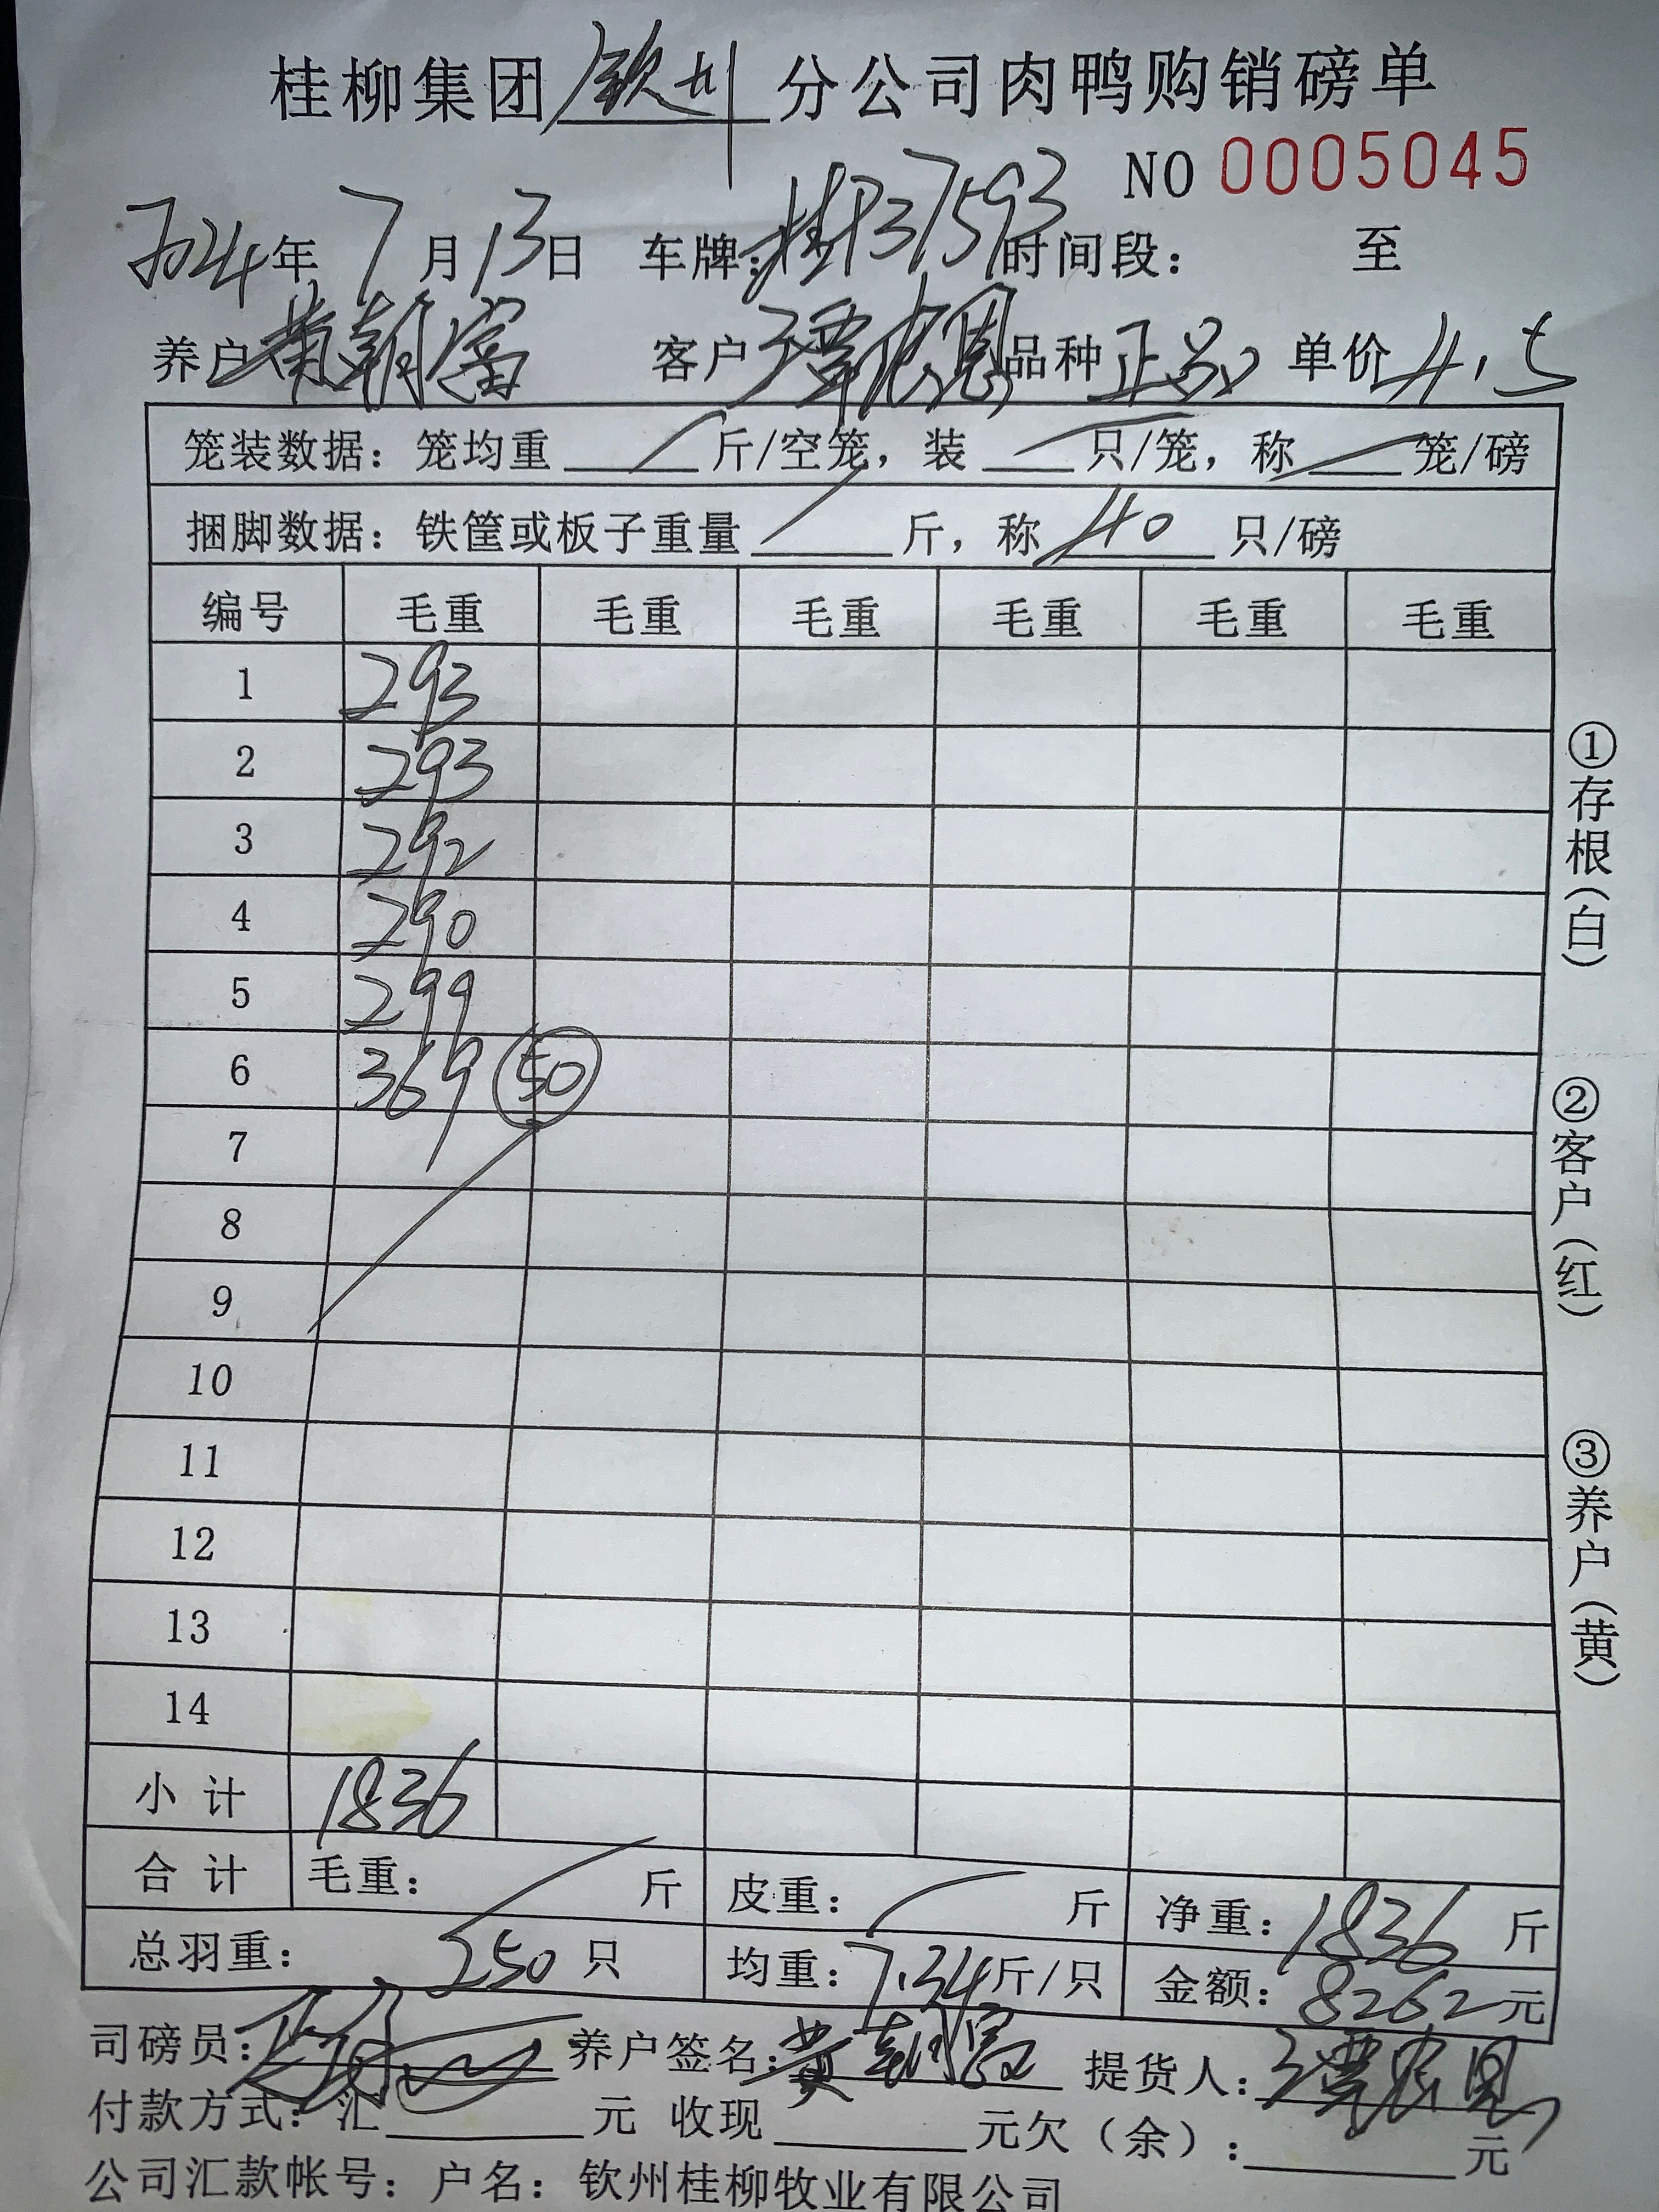 桂柳集团 钦州 分公司肉鸭购销磅单
NO 0005045
2024年 7月13日 车牌:桂P37593 时间段: 至
养户 黄朝富 客户 谭忠恩 品种 正品 单价 4.5
笼装数据: 笼均重 / 斤/空笼, 装 / 只/笼, 称 / 笼/磅
捆脚数据: 铁筐或板子重量 / 斤, 称 40 只/磅
编号 毛重 毛重 毛重 毛重 毛重 毛重
1 293
2 293
3 292
4 290
5 299
6 369 50
7
8
9
10
11
12
13
14
小计 1836
合计 毛重: / 斤 皮重: / 斤 净重: 1836 斤
总羽重: 250 只 均重: 7.34 斤/只 金额: 8262 元
司磅员: 养户签名: 黄朝富 提货人: 谭忠恩
付款方式: 汇 元 收现 元欠(余): 元
公司汇款帐号: 户名: 钦州桂柳牧业有限公司
①存根(白)
②客户(红)
③养户(黄)